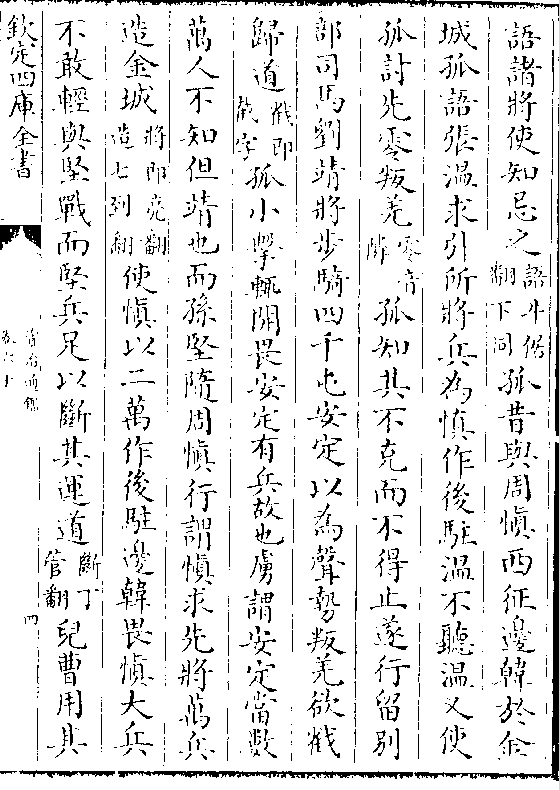 語諸將使知忌之語牛倨翻下同孤昔與周慎西征邊韓於金
城孤語張温求引所將兵為慎作後駐温不聽温又使
孤討先零叛羌零音憐孤知其不克而不得止遂行留別
部司馬劉靖將步騎四千屯安定以為聲勢叛羌欲𢧵
歸道𢧵即截字孤小擊輒開畏安定有兵故也虜謂安定當數
萬人不知但靖也而孫堅隨周慎行謂慎求先將萬兵
造金城將即亮翻造七到翻使慎以二萬作後駐邊韓畏慎大兵
不敢輕與堅戰而堅兵足以斷其運道斷丁管翻兒曹用其
欽定四庫全書
資治通鑑
卷六十
四